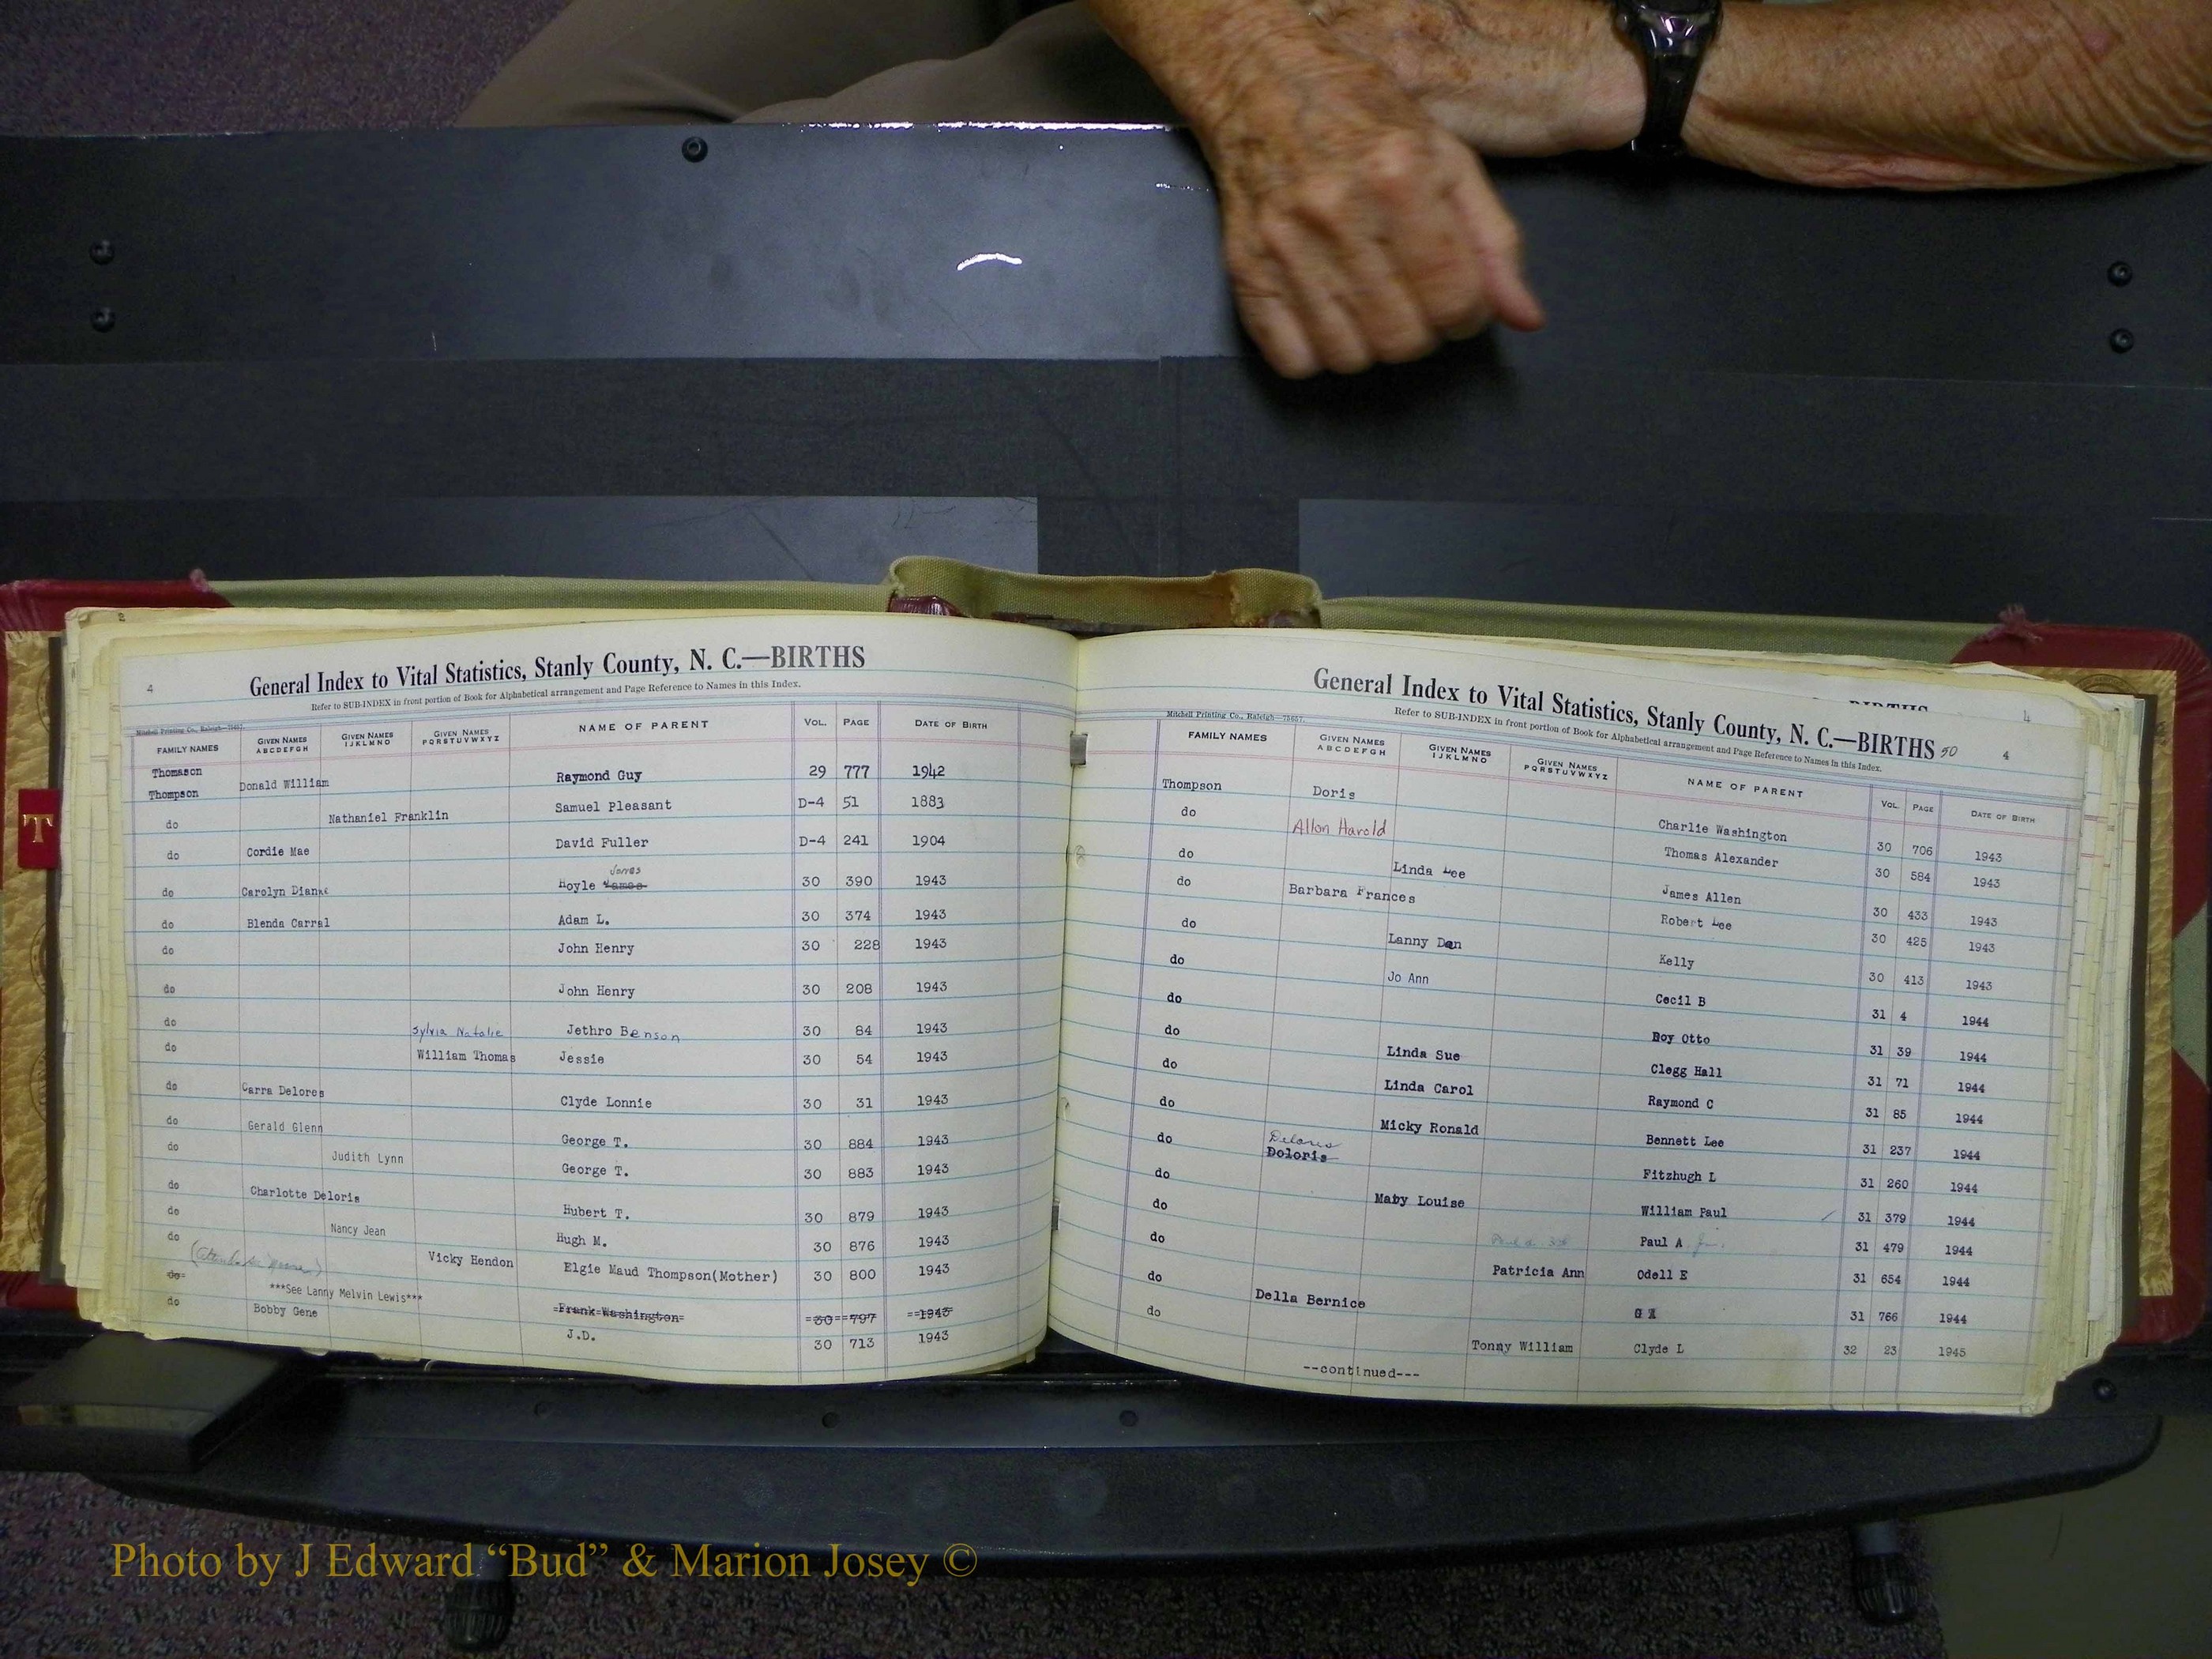 4
General Index to Vital Statistics, Stanly County, N. C.—BIRTHS
Refer to SUB-INDEX in front portion of Book for Alphabetical arrangement and Page Reference to Names in this Index.
Mitchell Printing Co., Raleigh—75657.
FAMILY NAMES GIVEN NAMES ABCDEFGH GIVEN NAMES IJKLMNO GIVEN NAMES PQRSTUVWXYZ NAME OF PARENT VOL. PAGE DATE OF BIRTH
Thomason Donald William Raymond Guy 29 777 1942
Thompson Nathaniel Franklin Samuel Pleasant D-4 51 1883
do Cordie Mae David Fuller D-4 241 1904
do Carolyn Diane Hoyle James 30 390 1943
do Blenda Carral Adam L. 30 374 1943
do John Henry 30 228 1943
do John Henry 30 208 1943
do Sylvia Natalie Jethro Benson 30 84 1943
do William Thomas Jessie 30 54 1943
do Carra Delores Clyde Lonnie 30 31 1943
do Gerald Glenn George T. 30 884 1943
do Judith Lynn George T. 30 883 1943
do Charlotte Deloris Hubert T. 30 879 1943
do Nancy Jean Hugh M. 30 876 1943
do Vicky Hendon Elgie Maud Thompson(Mother) 30 800 1943
do ***See Lanny Melvin Lewis*** Frank Washington 30 797 1943
do Bobby Gene J.D. 30 713 1943
General Index to Vital Statistics, Stanly County, N. C.—BIRTHS 50
4
Refer to SUB-INDEX in front portion of Book for Alphabetical arrangement and Page Reference to Names in this Index.
Mitchell Printing Co., Raleigh—75657.
FAMILY NAMES GIVEN NAMES ABCDEFGH GIVEN NAMES IJKLMNO GIVEN NAMES PQRSTUVWXYZ NAME OF PARENT VOL. PAGE DATE OF BIRTH
Thompson Doris Charlie Washington 30 706 1943
do Allon Harold Thomas Alexander 30 584 1943
do Linda Lee James Allen 30 433 1943
do Barbara Frances Robert Lee 30 425 1943
do Lanny Dan Kelly 30 413 1943
do Jo Ann Cecil B 31 4 1944
do Roy Otto 31 39 1944
do Linda Sue Clegg Hall 31 71 1944
do Linda Carol Raymond C 31 85 1944
do Micky Ronald Bennett Lee 31 237 1944
Deloris
do Doloris Fitzhugh L 31 260 1944
do Mary Louise William Paul 31 379 1944
do Paul A Jr. 31 479 1944
do Patricia Ann Odell E 31 654 1944
do Della Bernice 31 766 1944
do Tonny William Clyde L 32 23 1945
--continued---
T
Photo by J Edward “Bud” & Marion Josey ©